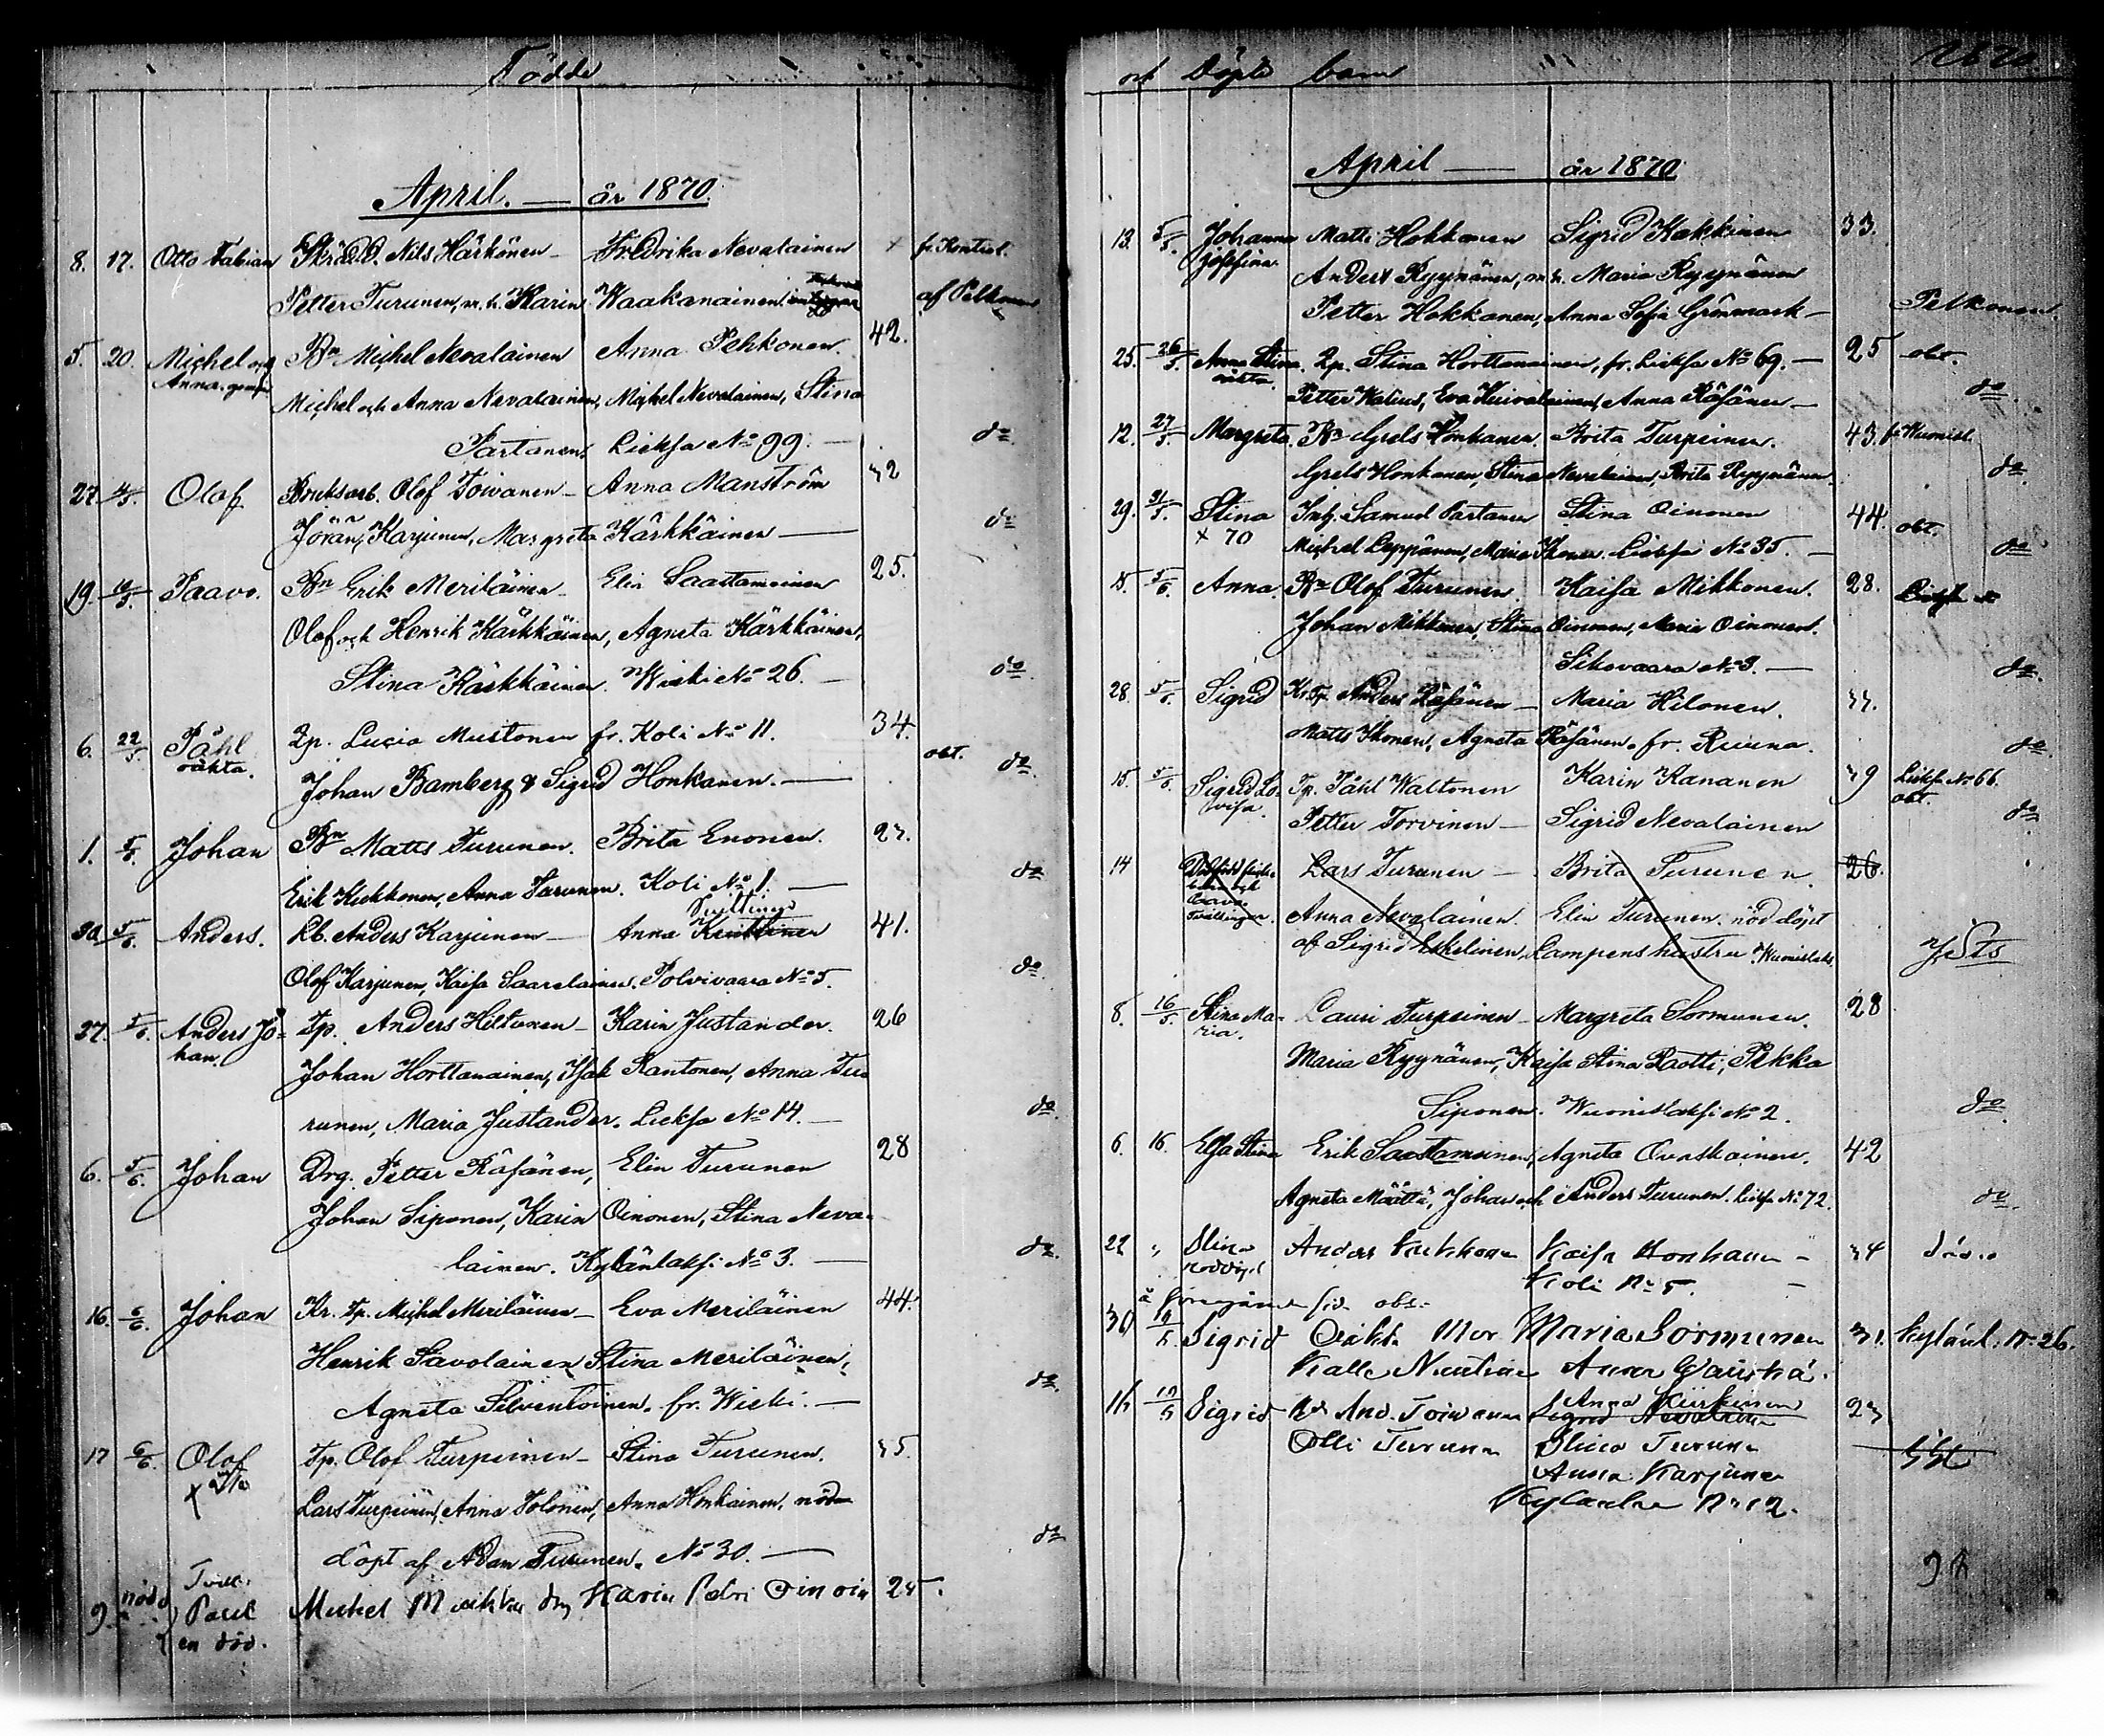 Födde
April. — år 1870.
8. 17. Otto Fabian Skrädd. Nils Härkönen — Fredrika Nevalainen × fr. Kontiol.
Petter Turunen, m. h. Karin Waakanainen af Pelkonen
5. 20. Michel och Anna Bn Michel Nevalainen Anna Pehkonen. 42.
Michel och Anna Nevalainen, Michel Nevalainen, Stina
Partanen, Lieksa No 99. — do
27. 4/5. Olof Bruksarb. Olof Toivanen — Anna Manström 32
Jöran Karjunen, Margreta Kärkkäinen — do
19. 10/5. Paavo. Bn Erik Meriläinen Elin Saastamoinen 25.
Olof och Henrik Kärkkäinen, Agneta Kärkkäinen,
Stina Kärkkäinen. Wieki No 26. — do
6. 22/5. Påhl oäkta. Qp. Lucia Mustonen fr. Koli No 11. 34. obt.
Johan Bamberg & Sigrid Honkanen. — do
1. 5/6. Johan Bn Matts Turunen. Brita Enonen. 27.
Erik Kukkonen, Anna Turunen. Koli No 1. — do
30. 5/6. Anders. Lb. Anders Karjunen — Anna 41.
Olof Karjunen, Kaisa Saarelainen. Polvivaara No 5. do
27. 5/6. Anders Jo-
han. Tp. Anders Hiltunen — Karin Justander. 26
Johan Horttanainen, Isak Rantonen, Anna Tu-
runen, Maria Justander. Lieksa No 14. — do
6. 5/6. Johan Drg. Petter Räsänen, Elin Turunen 28
Johan Siponen, Karin Oinonen, Stina Neva-
lainen. Kylänlaksi No 3. — do
16. 6/6. Johan Kr. Tp. Michel Meriläinen — Eva Meriläinen 44.
Henrik Savolainen Stina Meriläinen,
Agneta Silventoinen. fr. Wieki. — do
17 6/6. Olof × Tp. Olof Turpeinen — Stina Turunen. 35.
Lars Turpeinen, Anna Tolonen, Anna Honkainen, nöd
döpt af Adam Turunen. No 30. — do
Tvill.
9. nödd Paul Michel Karin 25.
en död.
och Döpte barn 1870.
April — år 1870
13. 5/5. Johanna Josefina Matts Hokkanen Sigrid Kakkinen 33.
Anders Ryynänen, m. h. Maria Ryynänen
Petter Hokkanen, Anna Sofia Grönmark — Pelkonen.
25. 26/5. Anna Stina oäkta. Qp. Stina Horttanainen, fr. Lieksa No 69. — 25 obt.
Petter Walius, Eva Kuivalainen, Anna Räsänen — do
12. 27/5. Margreta. Bn Grels Honkanen. Brita Turpeinen. 43.
Grels Honkanen, Stina Nevalainen, Brita Ryynänen. do
29. 31/5. Stina × 70 Inh. Samuel Partanen Stina Oinonen 44. obt.
Michel Leppänen, Maria Ikonen. Lieksa No 35. — do
15. 5/6. Anna. Bn Olof Turunen. Kaisa Mikkonen. 28.
Johan Mikkonen, Stina Oinonen, Maria Oinonen.
Sikovaara No 3. — do
28. 5/6. Sigrid Kr. Tp. Anders Räsänen — Maria Hilonen. 37.
Matts Ikonen, Agneta Räsänen. fr. Ruuna. do
15. 5/6. Sigrid Lo-
visa. Tp. Påhl Waltonen Karin Kananen 39 Lieksa No 66.
obt.
Petter Torvinen — Sigrid Nevalainen do
14 Tvillingar. Lars Turunen — Brita Turunen 26.
Anna Nevalainen. Elin Turunen. nöddöpt
af Sigrid Eskelinen, Lampens hustru
8. 16/5. Stina Ma-
ria. Lauri Turpeinen — Margreta Sormunen. 28
Maria Ryynänen, Kaisa Stina Raotti, Pekka
Siponen. Wuonislaksi No 2. do
6. 16. Elsa Stina Erik Saastamoinen, Agneta Ovaskainen. 42
Agneta Määttä, Johan och Anders Turunen. Lieksa No 72. do
22 " Stina nöddöpt Anders Kukkonen Kaisa Honkanen — 34
Koli No 5. —
å föregående sida obs.
30 19/5 Sigrid Oäkta Mor Maria Sormunen 31. Kylänl. No 26.
Kalle
16 19/5 Sigrid And. Toivanen Anna Kiiskinen 27
Olli Turunen Stina Turunen
Anna Karjunen
No 12.